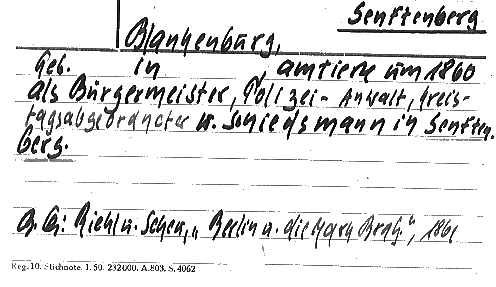 Senftenberg
Blankenburg,
Geb. in amtierte um 1860
als Bürgermeister, Polizei- Anwalt, Kreis-
tagsabgeordneter u. Schiedsmann in Senften-
berg.
Riehl u. Scheu, "Berlin u. die Mark Brdbg.", 1861
Reg. 10. Stichnote. 1. 50. 232000. A.803. S. 4062